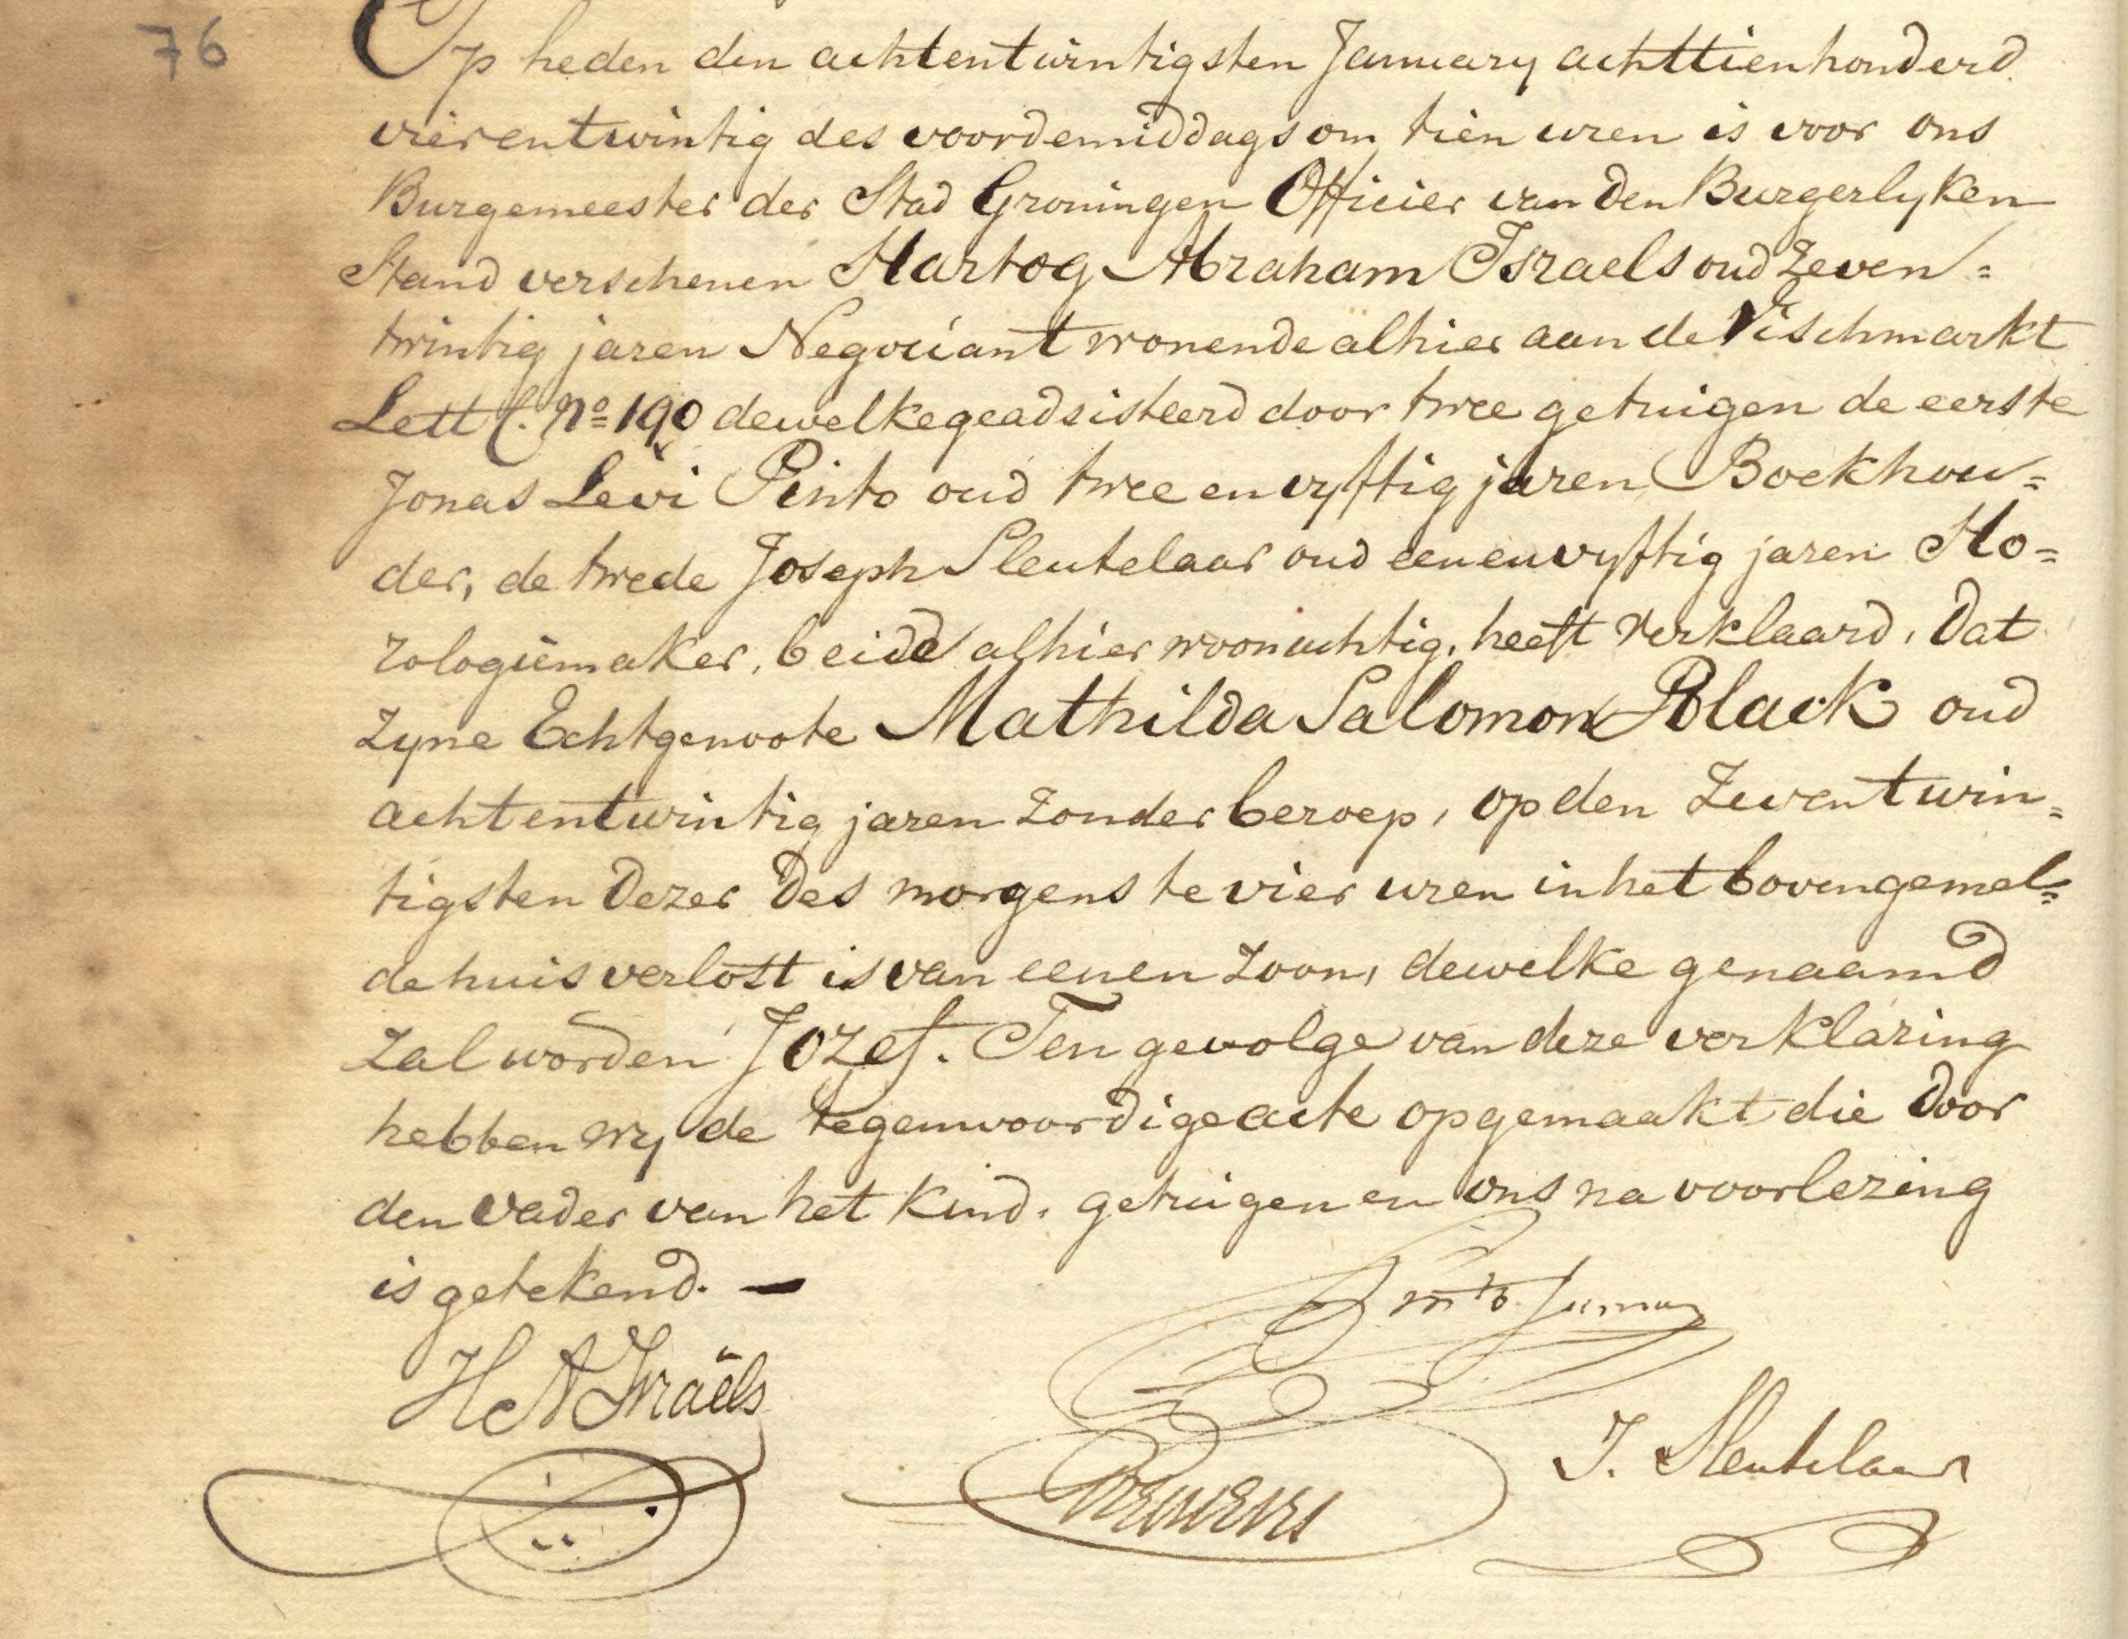 76
Op heden den achtentwintigsten January achttienhonderd
vierentwintig des voordemiddags om tien uren is voor ons
Burgemeester der Stad Groningen Officier van den Burgerlyken
Stand verschenen Hartog Abraham Israels oud Zeven=
twintig jaren Negociant wonende alhier aan de Vischmarkt
Lett C. No 190 dewelke geadsisteerd door twee getuigen de eerste
Jonas Levi Pinto oud twee en vyftig jaren Boekhou=
der, de twede Joseph Sleutelaar oud een en vyftig jaren Ho=
rologiemaker, beide alhier woonachtig, heeft verklaard, dat
zyne Echtgenoote Mathilda Salomon Polack oud
achtentwintig jaren zonder beroep, op den Zeventwin=
tigsten dezer des morgens te vier uren in het bovengemel=
de huis verlost is van eenen zoon, dewelke genaamd
zal worden Jozef. Ten gevolge van deze verklaring
hebben wy de tegenwoordige acte opgemaakt die door
den vader van het kind, getuigen en ons na voorlezing
is getekend. —
H A Israëls
J. Sleutelaar